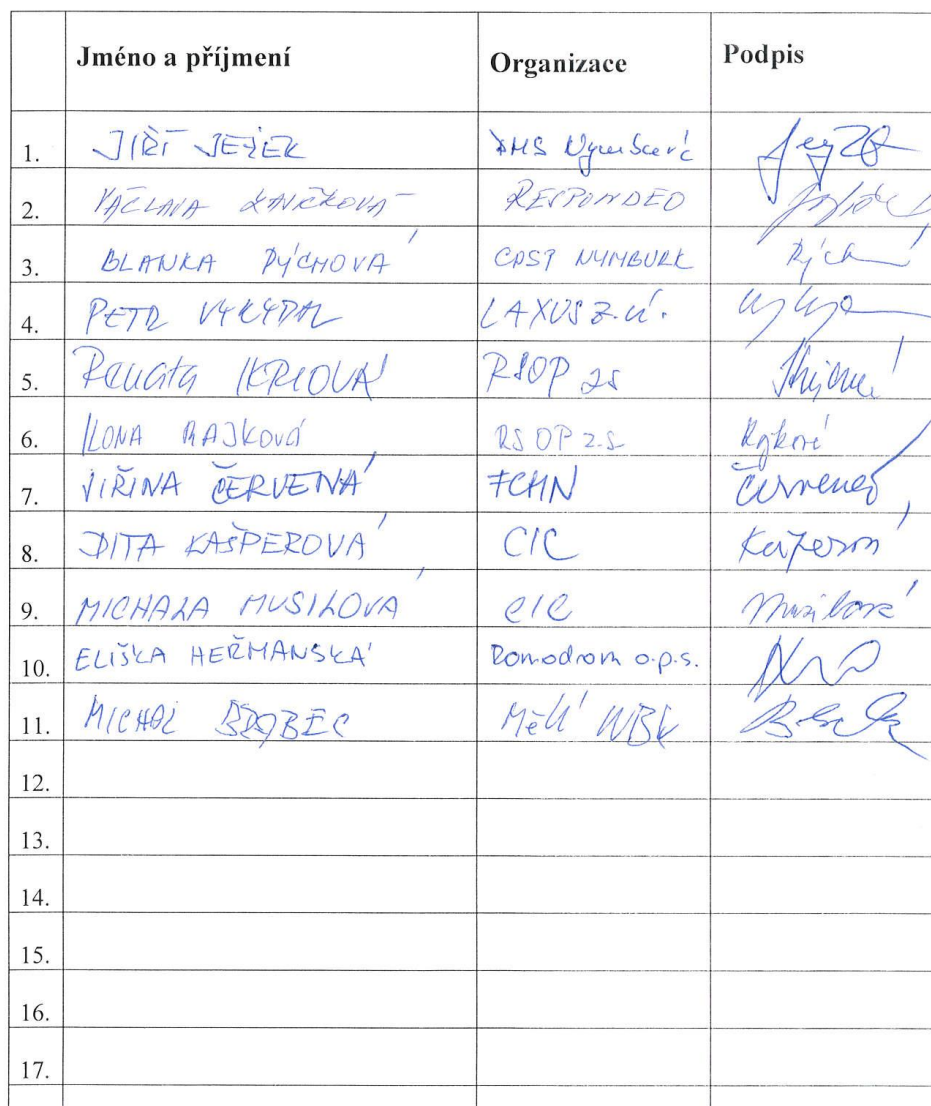 Jméno a příjmení Organizace Podpis
1. JIŘÍ JEŽEK
2. VÁCLAVA RESPONDEO
3. BLANKA RÝCHOVÁ CPST NYMBURK
4. PETR VYKYDAL LAXUS z.ú.
5. Renata RSOP zs
6. ILONA RAJKOVÁ RSOP z.s. Rajková
7. JIŘINA ČERVENÁ FCHN Červená
8. DITA KAŠPEROVÁ CIC Kašperová
9. MICHALA MUSILOVÁ CIC Musilová
10. ELIŠKA HEŘMANSKÁ Romodrom o.p.s.
11. MICHAL NBK
12.
13.
14.
15.
16.
17.